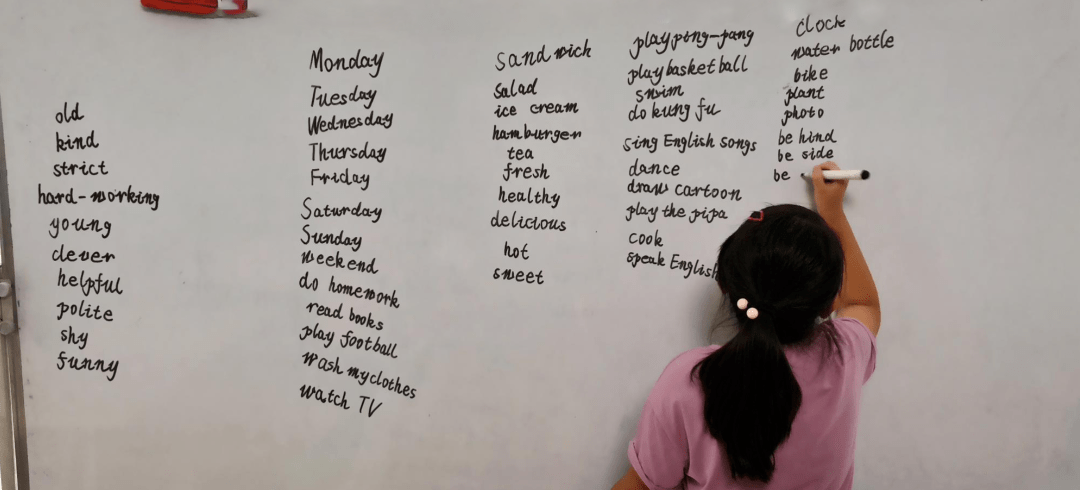 old
kind
strict
hard-working
young
clever
helpful
polite
shy
funny
Monday
Tuesday
Wednesday
Thursday
Friday
Saturday
Sunday
weekend
do homework
read books
play football
wash my clothes
watch TV
sandwich
salad
ice cream
hamburger
tea
fresh
healthy
delicious
hot
sweet
play ping-pang
play basketball
swim
do kung fu
sing English songs
dance
draw cartoon
play the pipa
cook
speak English
clock
water bottle
bike
plant
photo
be hind
be side
be